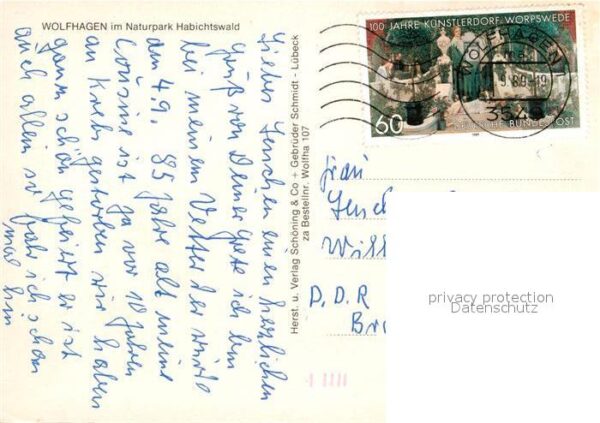 WOLFHAGEN im Naturpark Habichtswald
Liebes Lenchen einen herzlichen
Gruß von Deiner Grete ich bin
bei meinem Vetter der wurde
am 4.9. 85 Jahre alt meine
Cousine ist ja vor 10 Jahren
an Krebs gestorben wir haben
ganz schön gefeiert er ist
auch allein so fahr ich schon
mal hin
Herst. u. Verlag Schöning & Co + Gebrüder Schmidt - Lübeck
za Bestellnr. Wolfha 107
100 JAHRE KÜNSTLERDORF WORPSWEDE
60
DEUTSCHE BUNDESPOST
WOLFHAGEN
Frau
D.D.R
privacy protection
Datenschutz